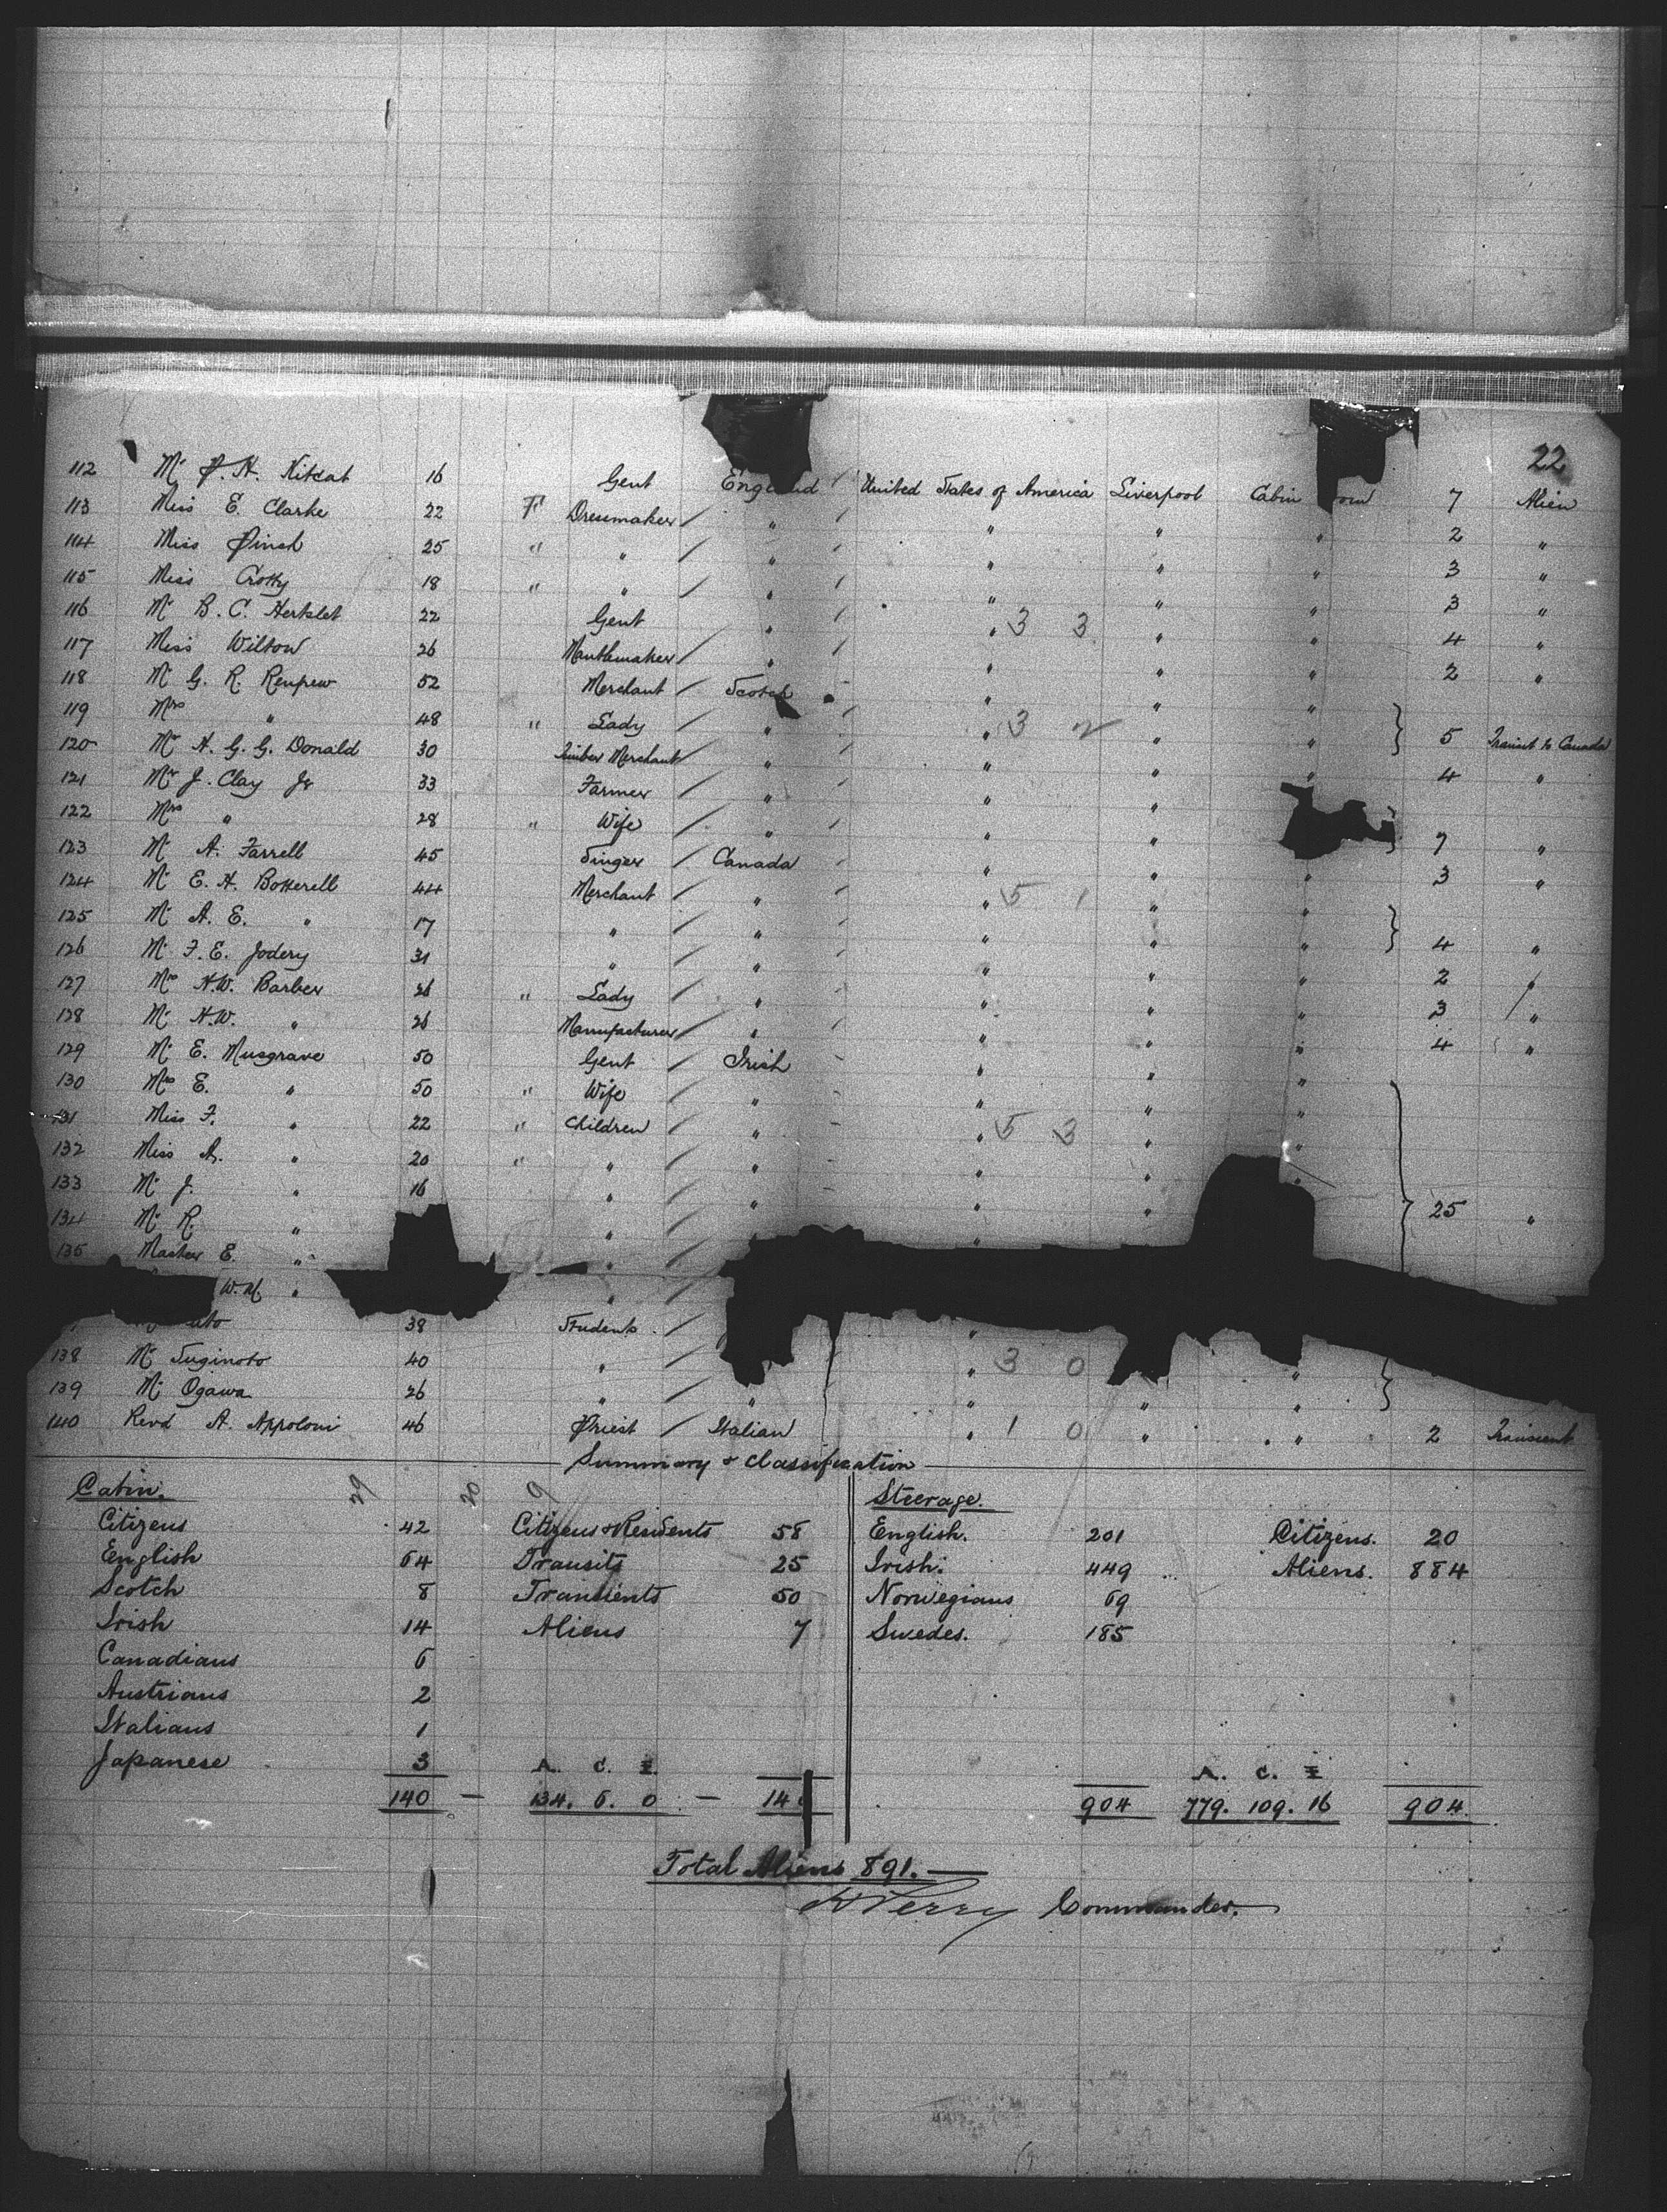 22
112 Mr P. H. Kitcat 16 Gent England United States of America Liverpool Cabin 7 Alien
113 Miss E. Clarke 22 F Dressmaker " " " " 2 "
114 Miss Pinch 25 " " " " " " 3 "
115 Miss Crotty 18 " " " " " " 3 "
116 Mr B. C. Hertslet 22 Gent " " 3 3 " " 4 "
117 Miss Wilton 26 Mantlemaker " " " " 2 "
118 Mr G. R. Renfrew 52 Merchant Scotch " " "
119 Mrs " 48 " Lady " " 3 2 " " 5 Transit to Canada
120 Mr H. G. G. Donald 30 Timber Merchant " " " " 4 "
121 Mr J. Clay Jr 33 Farmer " " "
122 Mrs " 28 " Wife " " " 7 "
123 Mr A. Farrell 45 Singer Canada " " " 3 "
124 Mr E. H. Botterell 44 Merchant " " 5 1 " "
125 Mr A. E. " 17 " " " " " 4 "
126 Mr F. E. Jodery 31 " " " " " 2 "
127 Mrs H.W. Barber 26 " Lady " " " " 3 "
128 Mr H.W. " 26 Manufacturer " " " " 4 "
129 Mr E. Musgrave 50 Gent Irish " " "
130 Mrs E. " 50 " Wife " " " "
131 Miss F. " 22 " Children " " 5 3 " "
132 Miss A. " 20 " " " " " "
133 Mr J. " 16 " " " " 25 "
134 Mr R. " " "
135 Master E. " "
W. M. " "
38 Students "
138 Mr Suginoto 40 " " 3 0 "
139 Mr Ogawa 26 " " " " "
140 Revd A. Appoloni 46 Priest Italian " 1 0 " " 2 Transient
Summary & Classification
Cabin. 29 20 9 Steerage.
Citizens 42 Citizens & Residents 58 English. 201 Citizens. 20
English 64 Transits 25 Irish. 449 Aliens. 884
Scotch 8 Transients 50 Norwegians 69
Irish 14 Aliens 7 Swedes. 185
Canadians 6
Austrians 2
Italians 1
Japanese 3 A. C. I. A. C. I
140 — 134. 6. 0 — 140 904 779. 109. 16 904
Total Aliens 891. —
H Perry Commander.